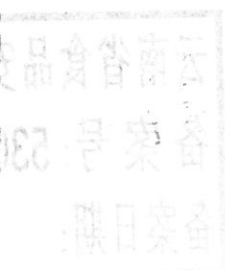 云南省食品
备案号:53
备案日期: